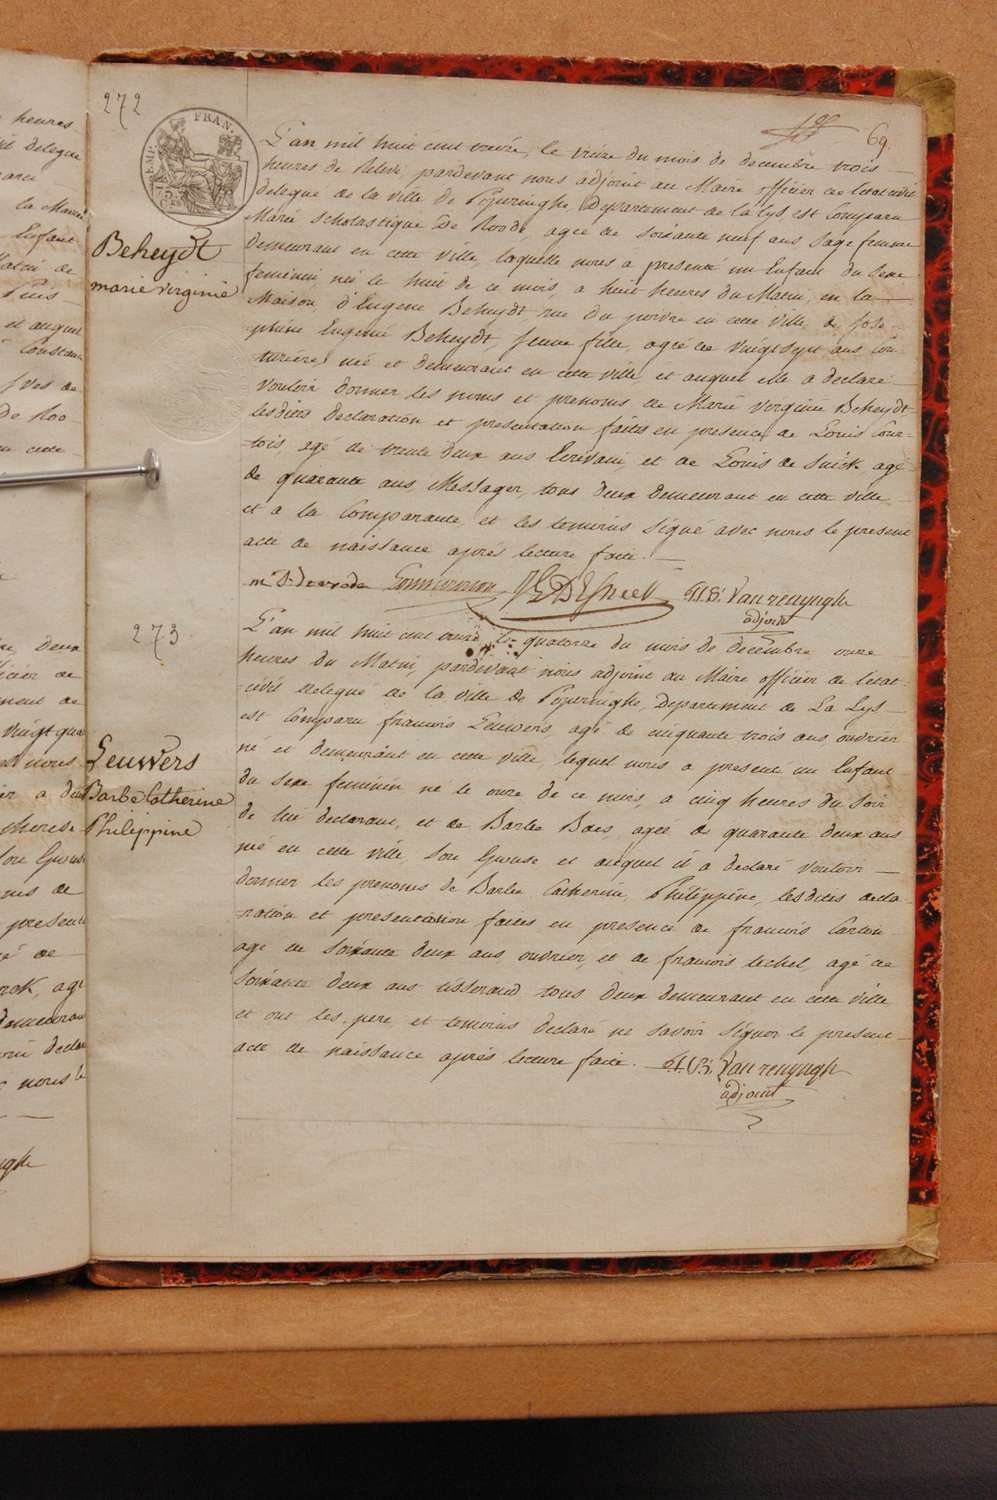 272
69
FRAN.
EMP.
L'an mil huit cent onze, le treize du mois de decembre trois
heures de Relevé, pardevant nous adjoint au Maire officier de l'etat civil
delegué de la ville de Poperinghe, Departement de la Lys, est Comparu
Marie Scholastique De Roode, agée de soixante neuf ans sage femme
demeurant en cette ville, laquelle nous a presenté un Enfant du sexe
feminin, née le huit de ce mois, a huit heures du Matin, en la
Maison d'Eugene Beheydt rue du poivre en cette ville, de Jose-
phine Eugenie Beheydt, jeune fille, agée de vingt sept ans Cou-
turiere, née et demeurant en cette ville et auquel elle a declaré
vouloir donner les noms et prenoms de Marie Virginie Beheydt
lesdites declaration et presentation faites en presence de Louis Cour-
tois, agé de trente deux ans Ecrivain, et de Louis de Snick agé
de quarante ans, Messager, tous deux demeurant en cette ville
et a la Comparante, et les temoins signé avec nous le present
acte de naissance après lecture faite.
Beheydt
marie virginie
m S: de roode
Vanrenynghe
adjoint
273
L'an mil huit cent onze, le quatorze du mois de decembre onze
heures du Matin, pardevant nous adjoint au Maire officier de l'etat
civil delegué de la ville de Poperinghe, departement de La Lys
est Comparu francois Leuwers, agé de cinquante trois ans ouvrier
né et demeurant en cette ville, lequel nous a presenté un Enfant
du sexe feminin né le onze de ce mois, a cinq heures du soir
de lui declarant, et de Barbe Baes, agée de quarante deux ans
née en cette ville, son Epouse, et auquel il a declaré vouloir
donner les prenoms de Barbe Catherine Philippine, lesdites decla-
ration et presentation faites en presence de francois Carton
agé de soixante deux ans ouvrier, et de francois lechel, agé de
soixante deux ans tisserand tous deux demeurant en cette ville
et ont les pere, et temoins declaré ne savoir signer le present
acte de naissance après lecture faite.
Vanrenynghe
adjoint
Leuwers
Barbe Catherine
Philippine